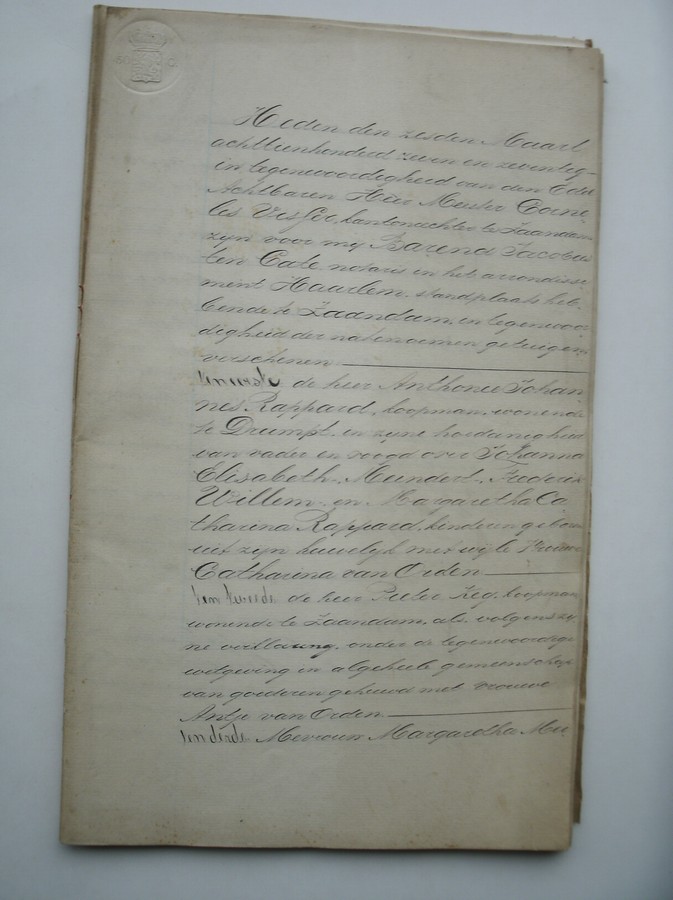 50 C.
Heden den zesden Maart
achttienhonderd zeven en zeventig
in tegenwoordigheid van den Edel
Achtbaren Heer Meester Corne
lis Visser, kantonrechter te Zaandam
zijn voor mij Barend Jacobus
ten Cate, notaris in het arrondisse
ment Haarlem, standplaats heb
bende te Zaandam, in tegenwoor
digheid der natenoemen getuigen
verschenen
ten eerste de heer Anthonie Johan
nes Rappard, koopman, wonende
te Drumpt, in zijne hoedanigheid
van vader en voogd over Johanna
Elisabeth, Meindert, Frederik
Willem en Margaretha Ca
tharina Rappard, kinderen geboren
uit zijn huwelijk met wijle Vrouwe
Catharina van Orden
ten tweede de heer Pieter Keg, koopman,
wonende te Zaandam, als volgens zij
ne verklaring onder de tegenwoordige
wetgeving in algeheele gemeenschap
van goederen gehuwd met vrouwe
Antje van Orden
ten derde Mevrouw Margaretha Mei